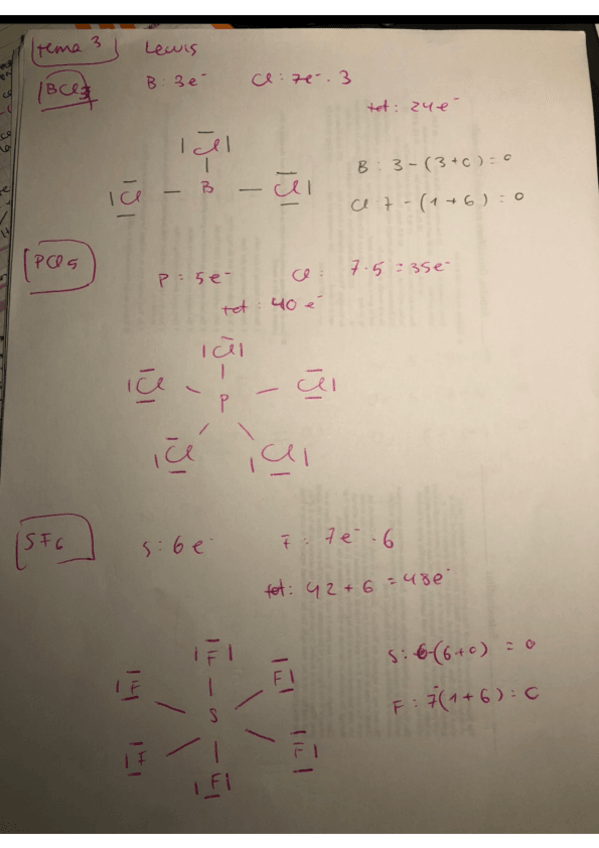 tema 3 Lewis
BCl3 B: 3e- Cl: 7e- · 3
tot: 24e-
|Cl|
|Cl — B — Cl|
B: 3-(3+0)=0
Cl 7-(1+6):0
PCl5
P: 5e- Cl: 7·5=35e-
tot: 40e-
|Cl|
|Cl P Cl|
|Cl |Cl|
SF6 S: 6e- F: 7e- · 6
tot: 42+6=48e-
|F|
|F F|
S
|F F|
|F|
S: 6-(6+0) = 0
F: 7-(1+6): 0